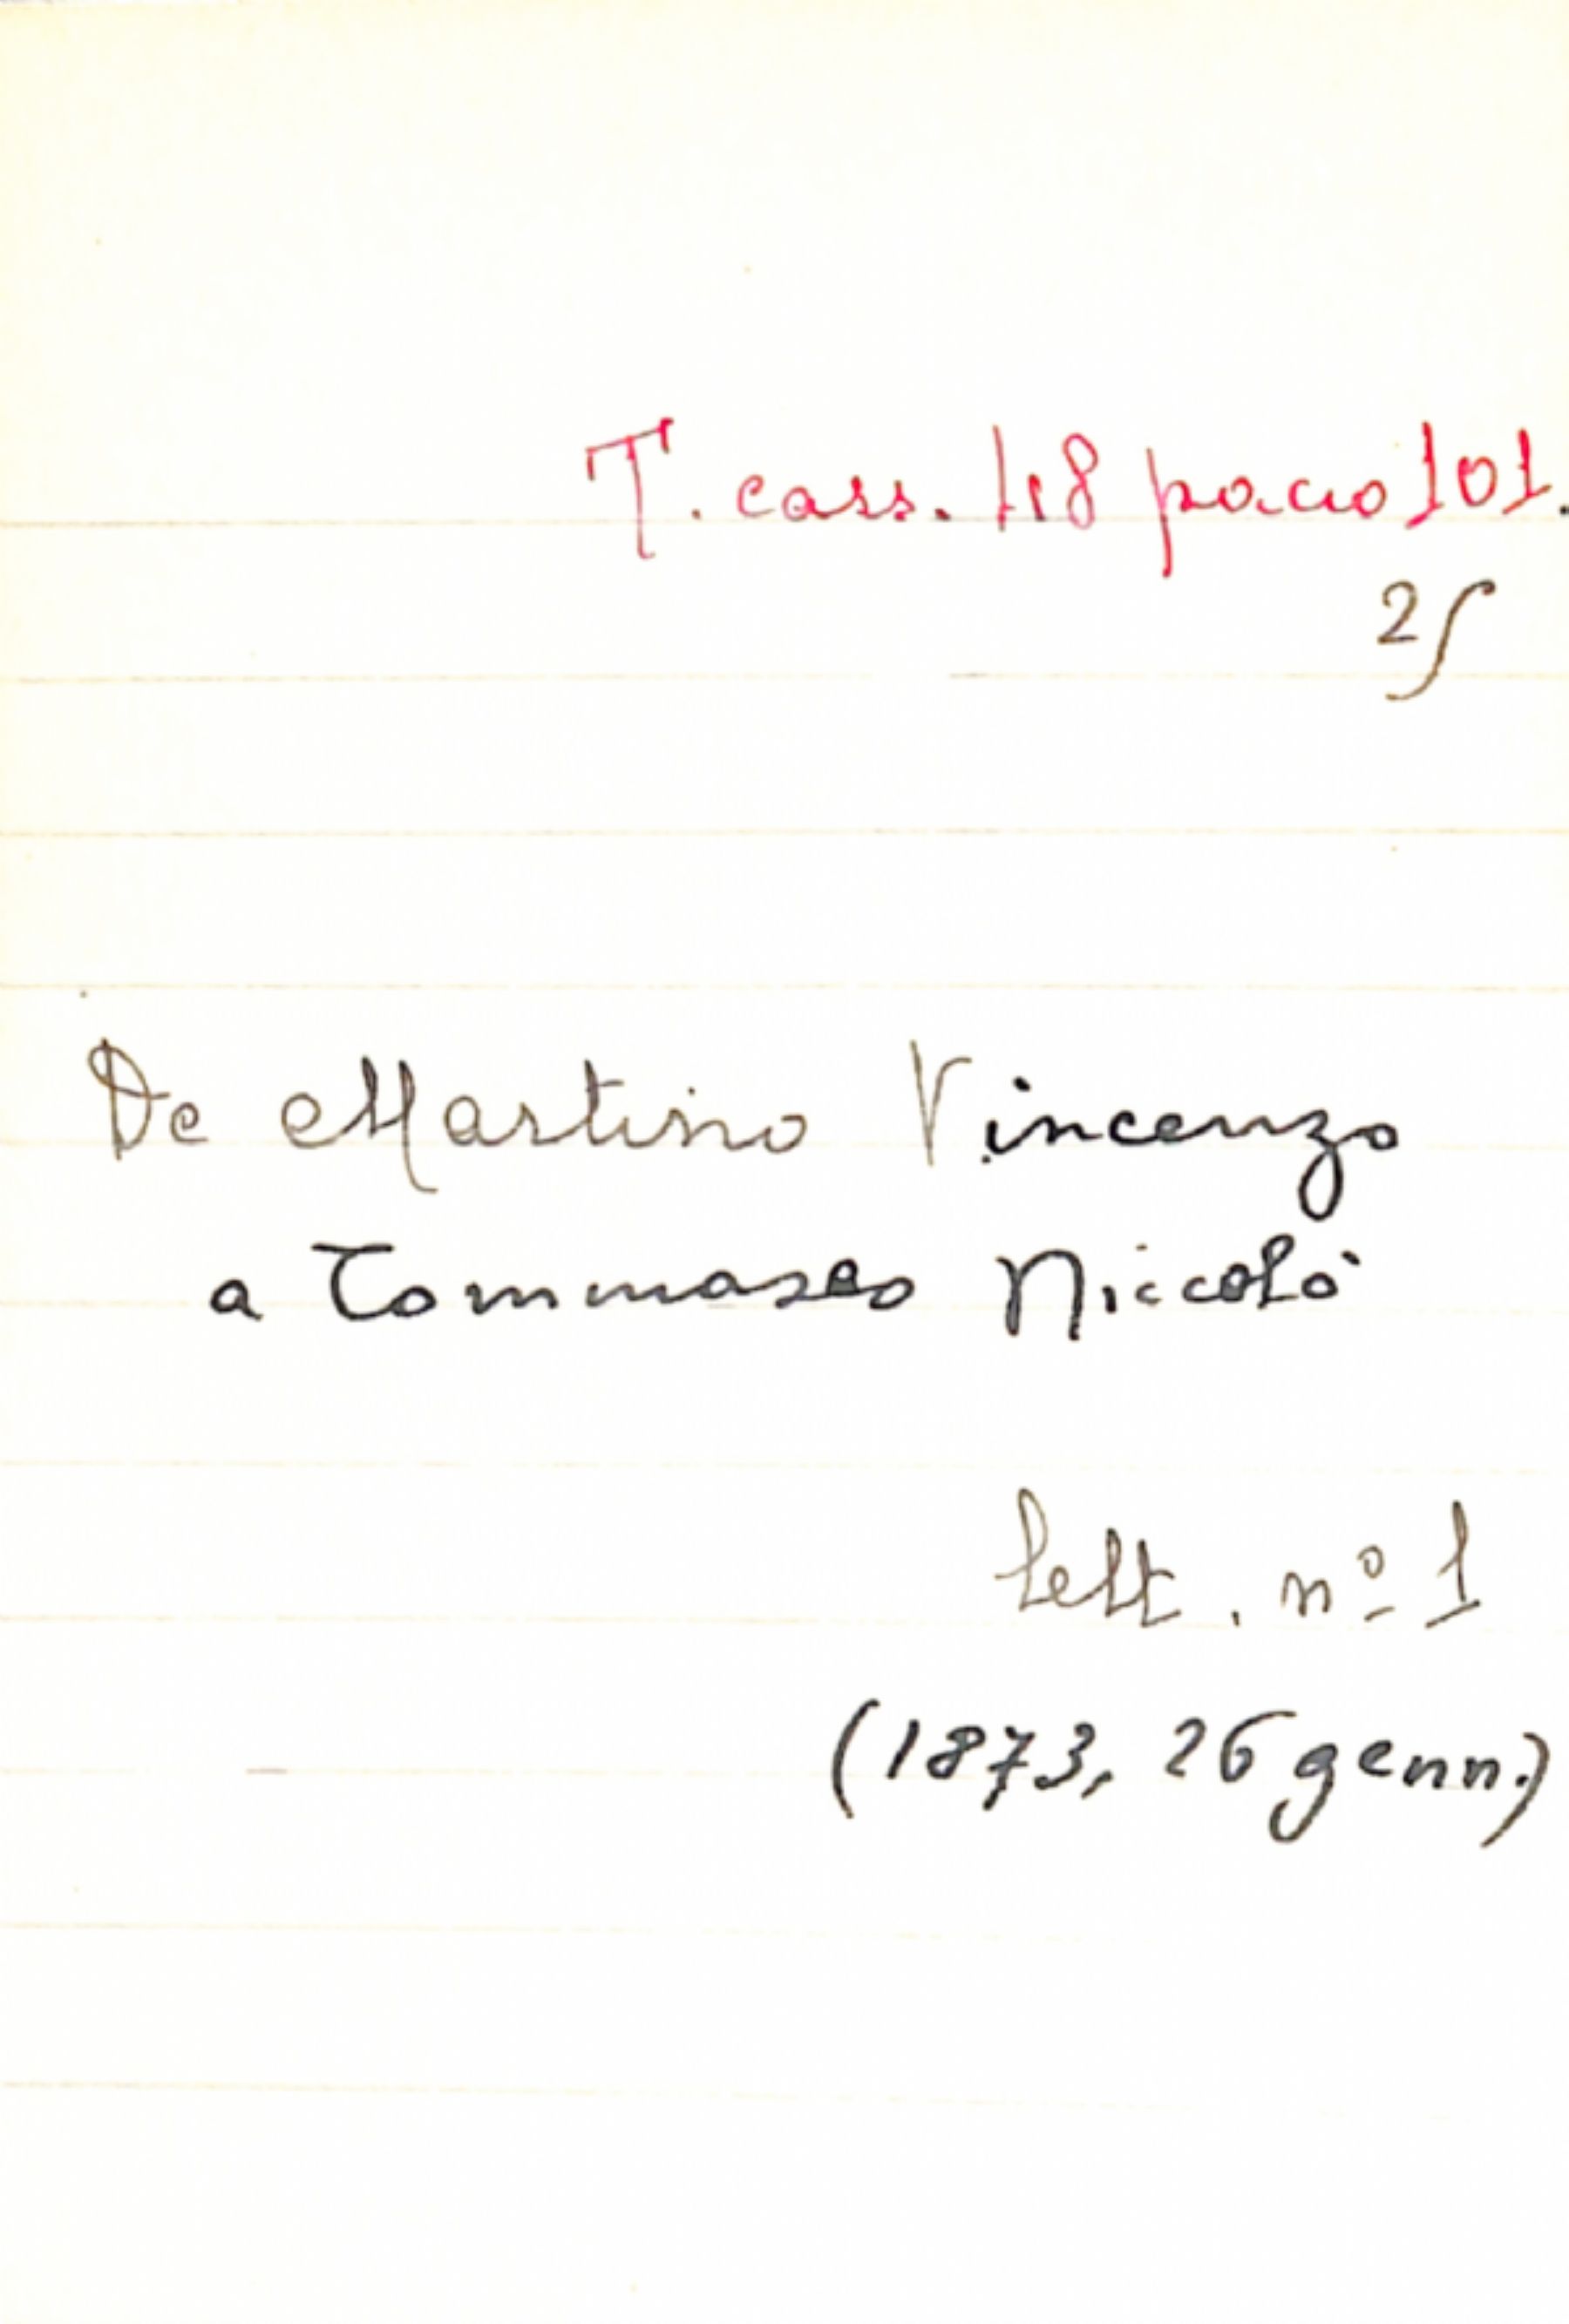 T. cass. 118 pacco 101.
2
De Martino Vincenzo
a Tommaseo Niccolò
lett. nº 1
(1873, 26 genn.)